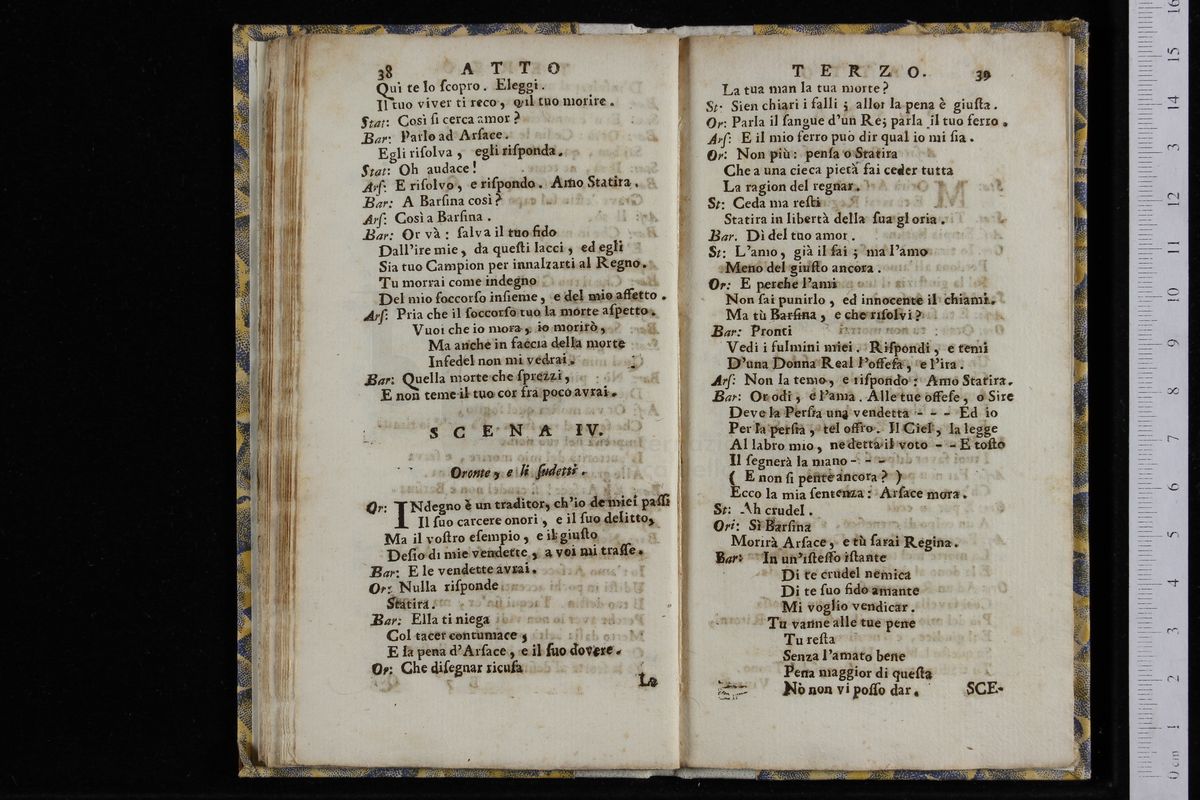 38 ATTO
Quì te lo ſcopro. Eleggi.
Il tuo viver ti reco, o 'l tuo morire.
Stat: Così ſi cerca amor?
Bar: Parlo ad Arſace.
Egli riſolva, egli riſponda.
Stat: Oh audace!
Arſ: E riſolvo, e riſpondo. Amo Statira.
Bar: A Barſina così?
Arſ: Così a Barſina.
Bar: Or và: ſalva il tuo fido
Dall'ire mie, da queſti lacci, ed egli
Sia tuo Campion per innalzarti al Regno.
Tu morrai come indegno
Del mio ſoccorſo inſieme, e del mio affetto.
Arſ: Pria che il ſoccorſo tuo la morte aſpetto.
Vuoi che io mora, io morirò,
Ma anche in faccia della morte
Infedel non mi vedrai.
Bar: Quella morte che ſprezzi,
E non teme il tuo cor fra poco avrai.
SCENA IV.
Oronte, e li ſudetti.
Or: INdegno è un traditor, ch'io de miei paſſi
Il ſuo carcere onori, e il ſuo delitto,
Ma il voſtro eſempio, e il giuſto
Deſio di mie vendette, a voi mi traſſe.
Bar: E le vendette avrai.
Or: Nulla riſponde
Statira.
Bar: Ella ti niega
Col tacer contumace,
E la pena d'Arſace, e il ſuo dovere.
Or: Che diſegnar ricuſa
La
TERZO. 39
La tua man la tua morte?
St. Sien chiari i falli; allor la pena è giuſta.
Or: Parla il ſangue d'un Re; parla il tuo ferro.
Arſ: E il mio ferro può dir qual io mi ſia.
Or: Non più: penſa o Statira
Che a una cieca pietà fai ceder tutta
La ragion del regnar.
St: Ceda ma reſti
Statira in libertà della ſua gloria.
Bar. Dì del tuo amor.
St: L'amo, già il ſai; ma l'amo
Meno del giuſto ancora.
Or: E perche l'ami
Non ſai punirlo, ed innocente il chiami.
Ma tù Barſina, e che riſolvi?
Bar: Pronti
Vedi i fulmini miei. Riſpondi, e temi
D'una Donna Real l'offeſa, e l'ira.
Arſ: Non la temo, e riſpondo: Amo Statira.
Bar: Or odi, e l'ama. Alle tue offeſe, o Sire
Deve la Perſia una vendetta - - - Ed io
Per la perſia, tel offro. Il Ciel, la legge
Al labro mio, ne detta il voto - - E toſto
Il ſegnerà la mano - - -
( E non ſi pente ancora? )
Ecco la mia ſentenza: Arſace mora.
St: Ah crudel.
Ori: Sì Barſina
Morirà Arſace, e tù ſarai Regina.
Bar: In un'iſteſſo iſtante
Di te crudel nemica
Di te ſuo fido amante
Mi voglio vendicar.
Tu vanne alle tue pene
Tu reſta
Senza l'amato bene
Pena maggior di queſta
Nò non vi poſſo dar.
SCE-
0 cm 1 2 3 4 5 6 7 8 9 10 11 12 13 14 15 16